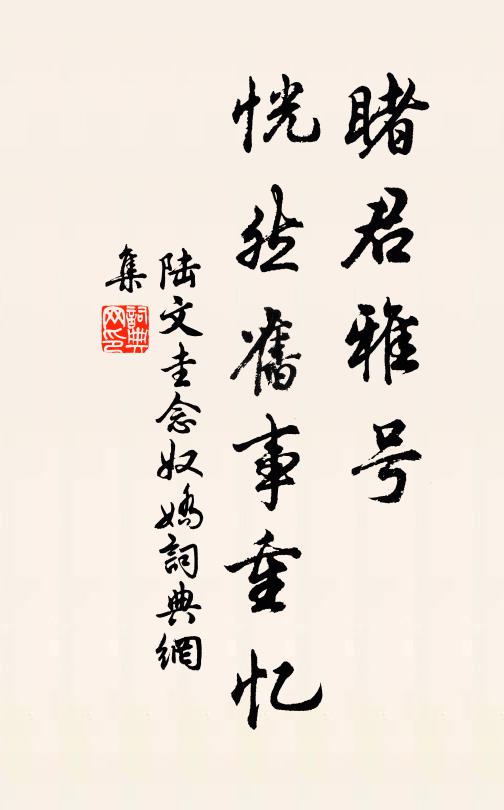 睹君雅号
恍然旧事重忆
陆文圭念奴娇詞典網
集
詞典网印